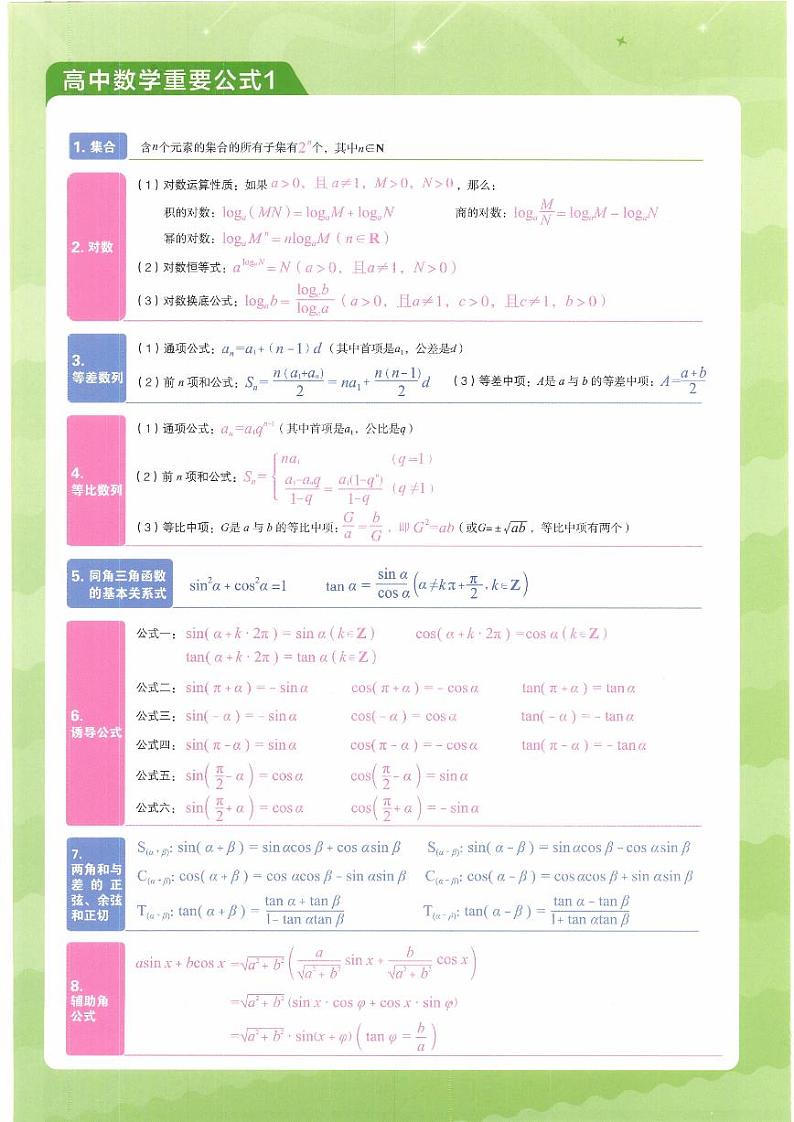 高中数学重要公式1
1. 集合
含n个元素的集合的所有子集有2ⁿ个，其中n∈N
2. 对数
（1）对数运算性质：如果 a＞0，且 a≠1，M＞0，N＞0，那么：
积的对数：logₐ(MN)=logₐM+logₐN 商的对数：logₐ(M/N)=logₐM－logₐN
幂的对数：logₐMⁿ=nlogₐM（n∈R）
（2）对数恒等式：a^(logₐN)=N（a＞0，且a≠1，N＞0）
（3）对数换底公式：logₐb=(log_c b)/(log_c a)（a＞0，且a≠1，c＞0，且c≠1，b＞0）
3.
等差数列
（1）通项公式：aₙ=a₁+(n－1)d（其中首项是a₁，公差是d）
（2）前 n 项和公式：Sₙ=n(a₁+aₙ)/2=na₁+n(n－1)/2 d （3）等差中项：A是 a 与 b 的等差中项：A=(a+b)/2
4.
等比数列
（1）通项公式：aₙ=a₁qⁿ⁻¹（其中首项是a₁，公比是q）
（2）前 n 项和公式：Sₙ={na₁ （q=1）
(a₁-aₙq)/(1-q)=a₁(1-qⁿ)/(1-q) （q≠1）
（3）等比中项：G是 a 与 b 的等比中项：G/a=b/G，即 G²=ab（或G=±√ab，等比中项有两个）
5. 同角三角函数
的基本关系式
sin²α+cos²α=1 tan α=sin α/cos α (α≠kπ+π/2,k∈Z)
6.
诱导公式
公式一：sin(α+k·2π)=sin α(k∈Z) cos(α+k·2π)=cos α(k∈Z)
tan(α+k·2π)=tan α(k∈Z)
公式二：sin(π+α)=－sin α cos(π+α)=－cos α tan(π+α)=tan α
公式三：sin(－α)=－sin α cos(－α)=cos α tan(－α)=－tan α
公式四：sin(π－α)=sin α cos(π－α)=－cos α tan(π－α)=－tan α
公式五：sin(π/2－α)=cos α cos(π/2－α)=sin α
公式六：sin(π/2+α)=cos α cos(π/2+α)=－sin α
7.
两角和与
差的正
弦、余弦
和正切
S(α+β): sin(α+β)=sin αcos β+cos αsin β S(α-β): sin(α－β)=sin αcos β－cos αsin β
C(α+β): cos(α+β)=cos αcos β－sin αsin β C(α-β): cos(α－β)=cos αcos β+sin αsin β
T(α+β): tan(α+β)=(tan α+tan β)/(1－tan αtan β) T(α-β): tan(α－β)=(tan α－tan β)/(1+tan αtan β)
8.
辅助角
公式
asin x+bcos x=√(a²+b²)(a/√(a²+b²) sin x+b/√(a²+b²) cos x)
=√(a²+b²)(sin x·cos φ+cos x·sin φ)
=√(a²+b²)·sin(x+φ)(tan φ=b/a)